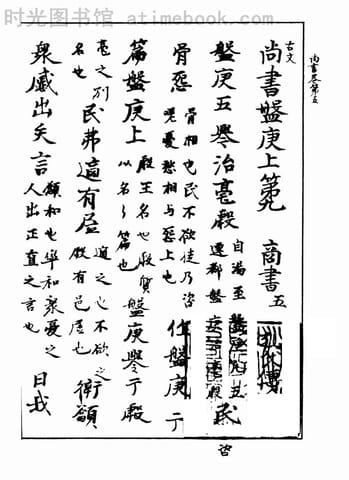 时光图书馆
尚書卷第五
古文
尚書盤庚上第九 商書五 孔氏傳
盤庚五䙴治亳殷 自湯至盤庚凡五遷都盤庚治亳殷 民
咨
胥怨 胥相也民不欲徙乃咨嗟憂愁相与怨上也 作盤庚三
篇盤庚上 殷王名也殷質以名名篇也 盤庚䙴于殷
亳之別名也 民弗適有居 適之也不欲之殷有邑居也 衛籲
衆慼出矢言 籲和也率和衆憂之人出正直之言也 曰我